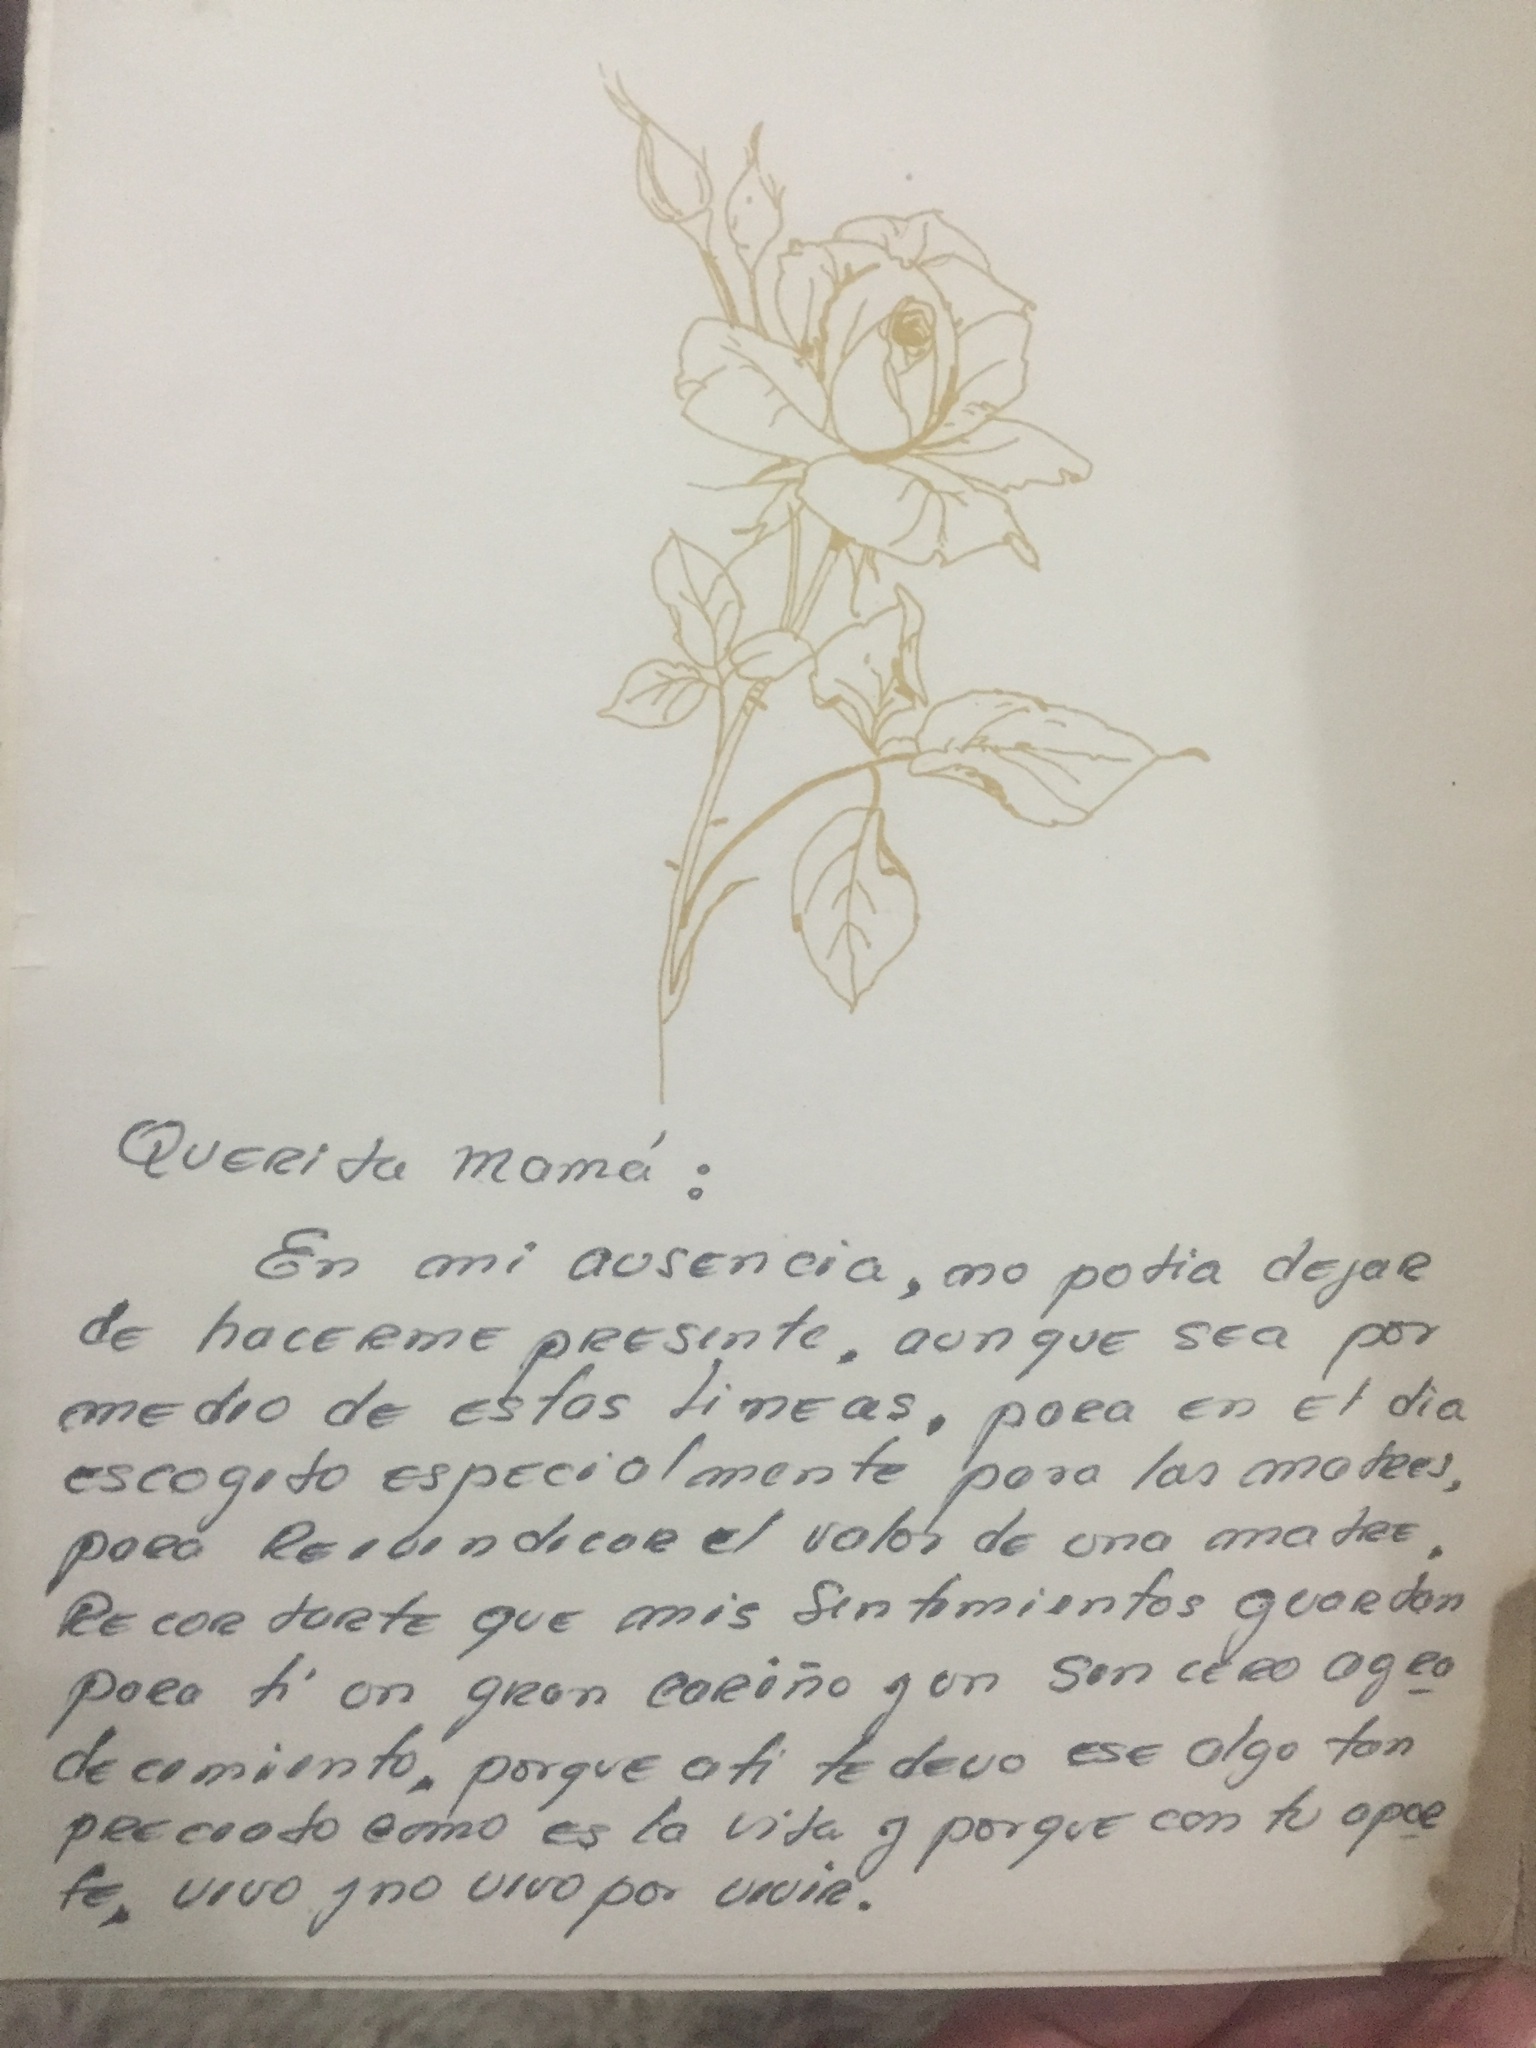 Querida Mamá:
En mi ausencia, no podia dejar
de hacerme presente, aunque sea por
medio de estas lineas, para en el dia
escogido especialmente para las madres,
para Reivindicar el valor de una madre.
Recordarte que mis Sentimientos guardan
para ti un gran cariño y un Sincero agra
decimiento, porque a ti te devo ese algo tan
preciado como es la vida y porque con tu apor
te, vivo y no vivo por vivir.